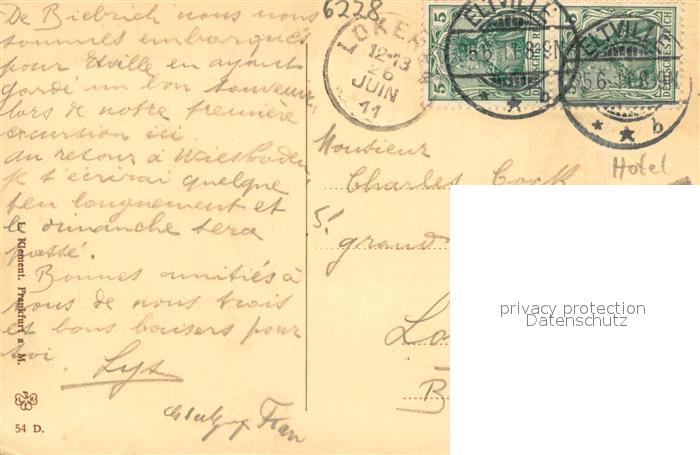 De Biebrich nous nous
sommes embarqués
pour Etville en ayant
gardé un bon souvenir
lors de notre première
excursion ici
au retour à Wiesbaden
je t'écrirai quelque
peu longuement et
le dimanche sera
passé.
Bonnes amitiés à
vous de nous trois
et bons baisers pour
toi.
Lys
L. Klement. Frankfurt a. M.
54 D.
6228
LOKER
12-13
26
JUIN
11
5
DEUTSCHES REICH
ELTVILLE
* * b
5
DEUTSCHES REICH
ELTVILLE
* * b
Hotel
Monsieur
Charles
grand
Lo
B
privacy protection
Datenschutz